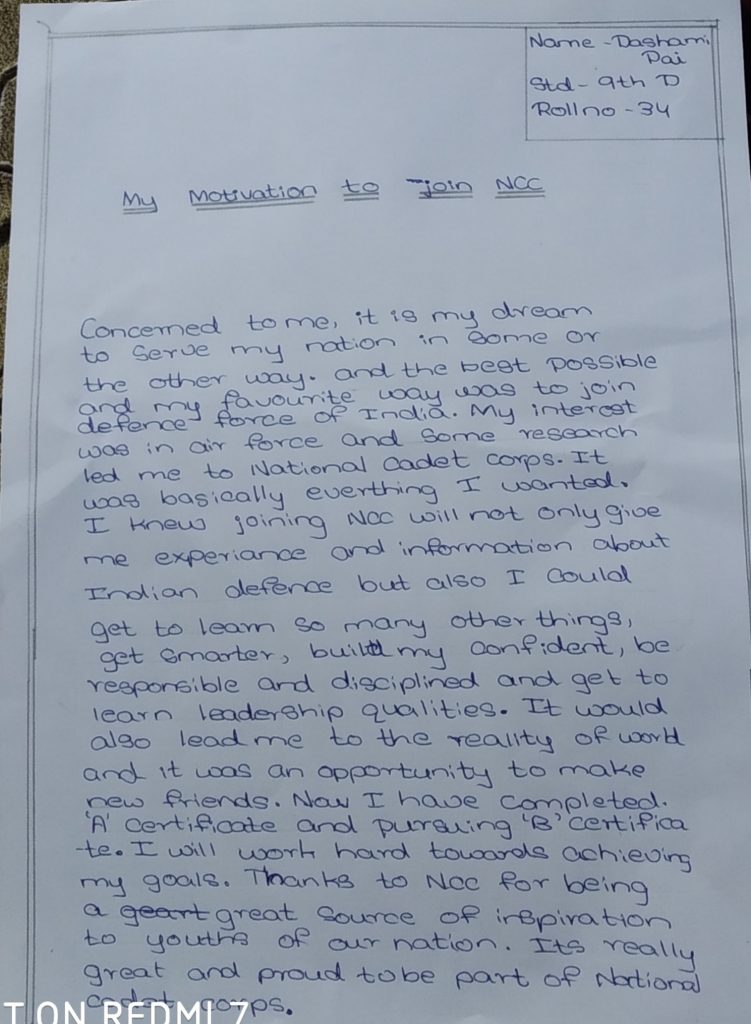 Name - Dashami
Pai
Std - 9th D
Roll no - 34
My Motivation to join NCC
Concerned to me, it is my dream
to serve my nation in some or
the other way. and the best possible
and my favourite way was to join
defence force of India. My interest
was in air force and some research
led me to National cadet corps. It
was basically everthing I wanted.
I knew joining NCC will not only give
me experiance and information about
Indian defence but also I could
get to learn so many other things,
get smarter, build my confident, be
responsible and disciplined and get to
learn leadership qualities. It would
also lead me to the reality of world
and it was an opportunity to make
new friends. Now I have completed.
'A' certificate and pursuing 'B' certifica
-te. I will work hard towards achieving
my goals. Thanks to NCC for being
a geart great source of inspiration
to youths of our nation. Its really
great and proud to be part of National
cadet corps.
T ON REDMI 7